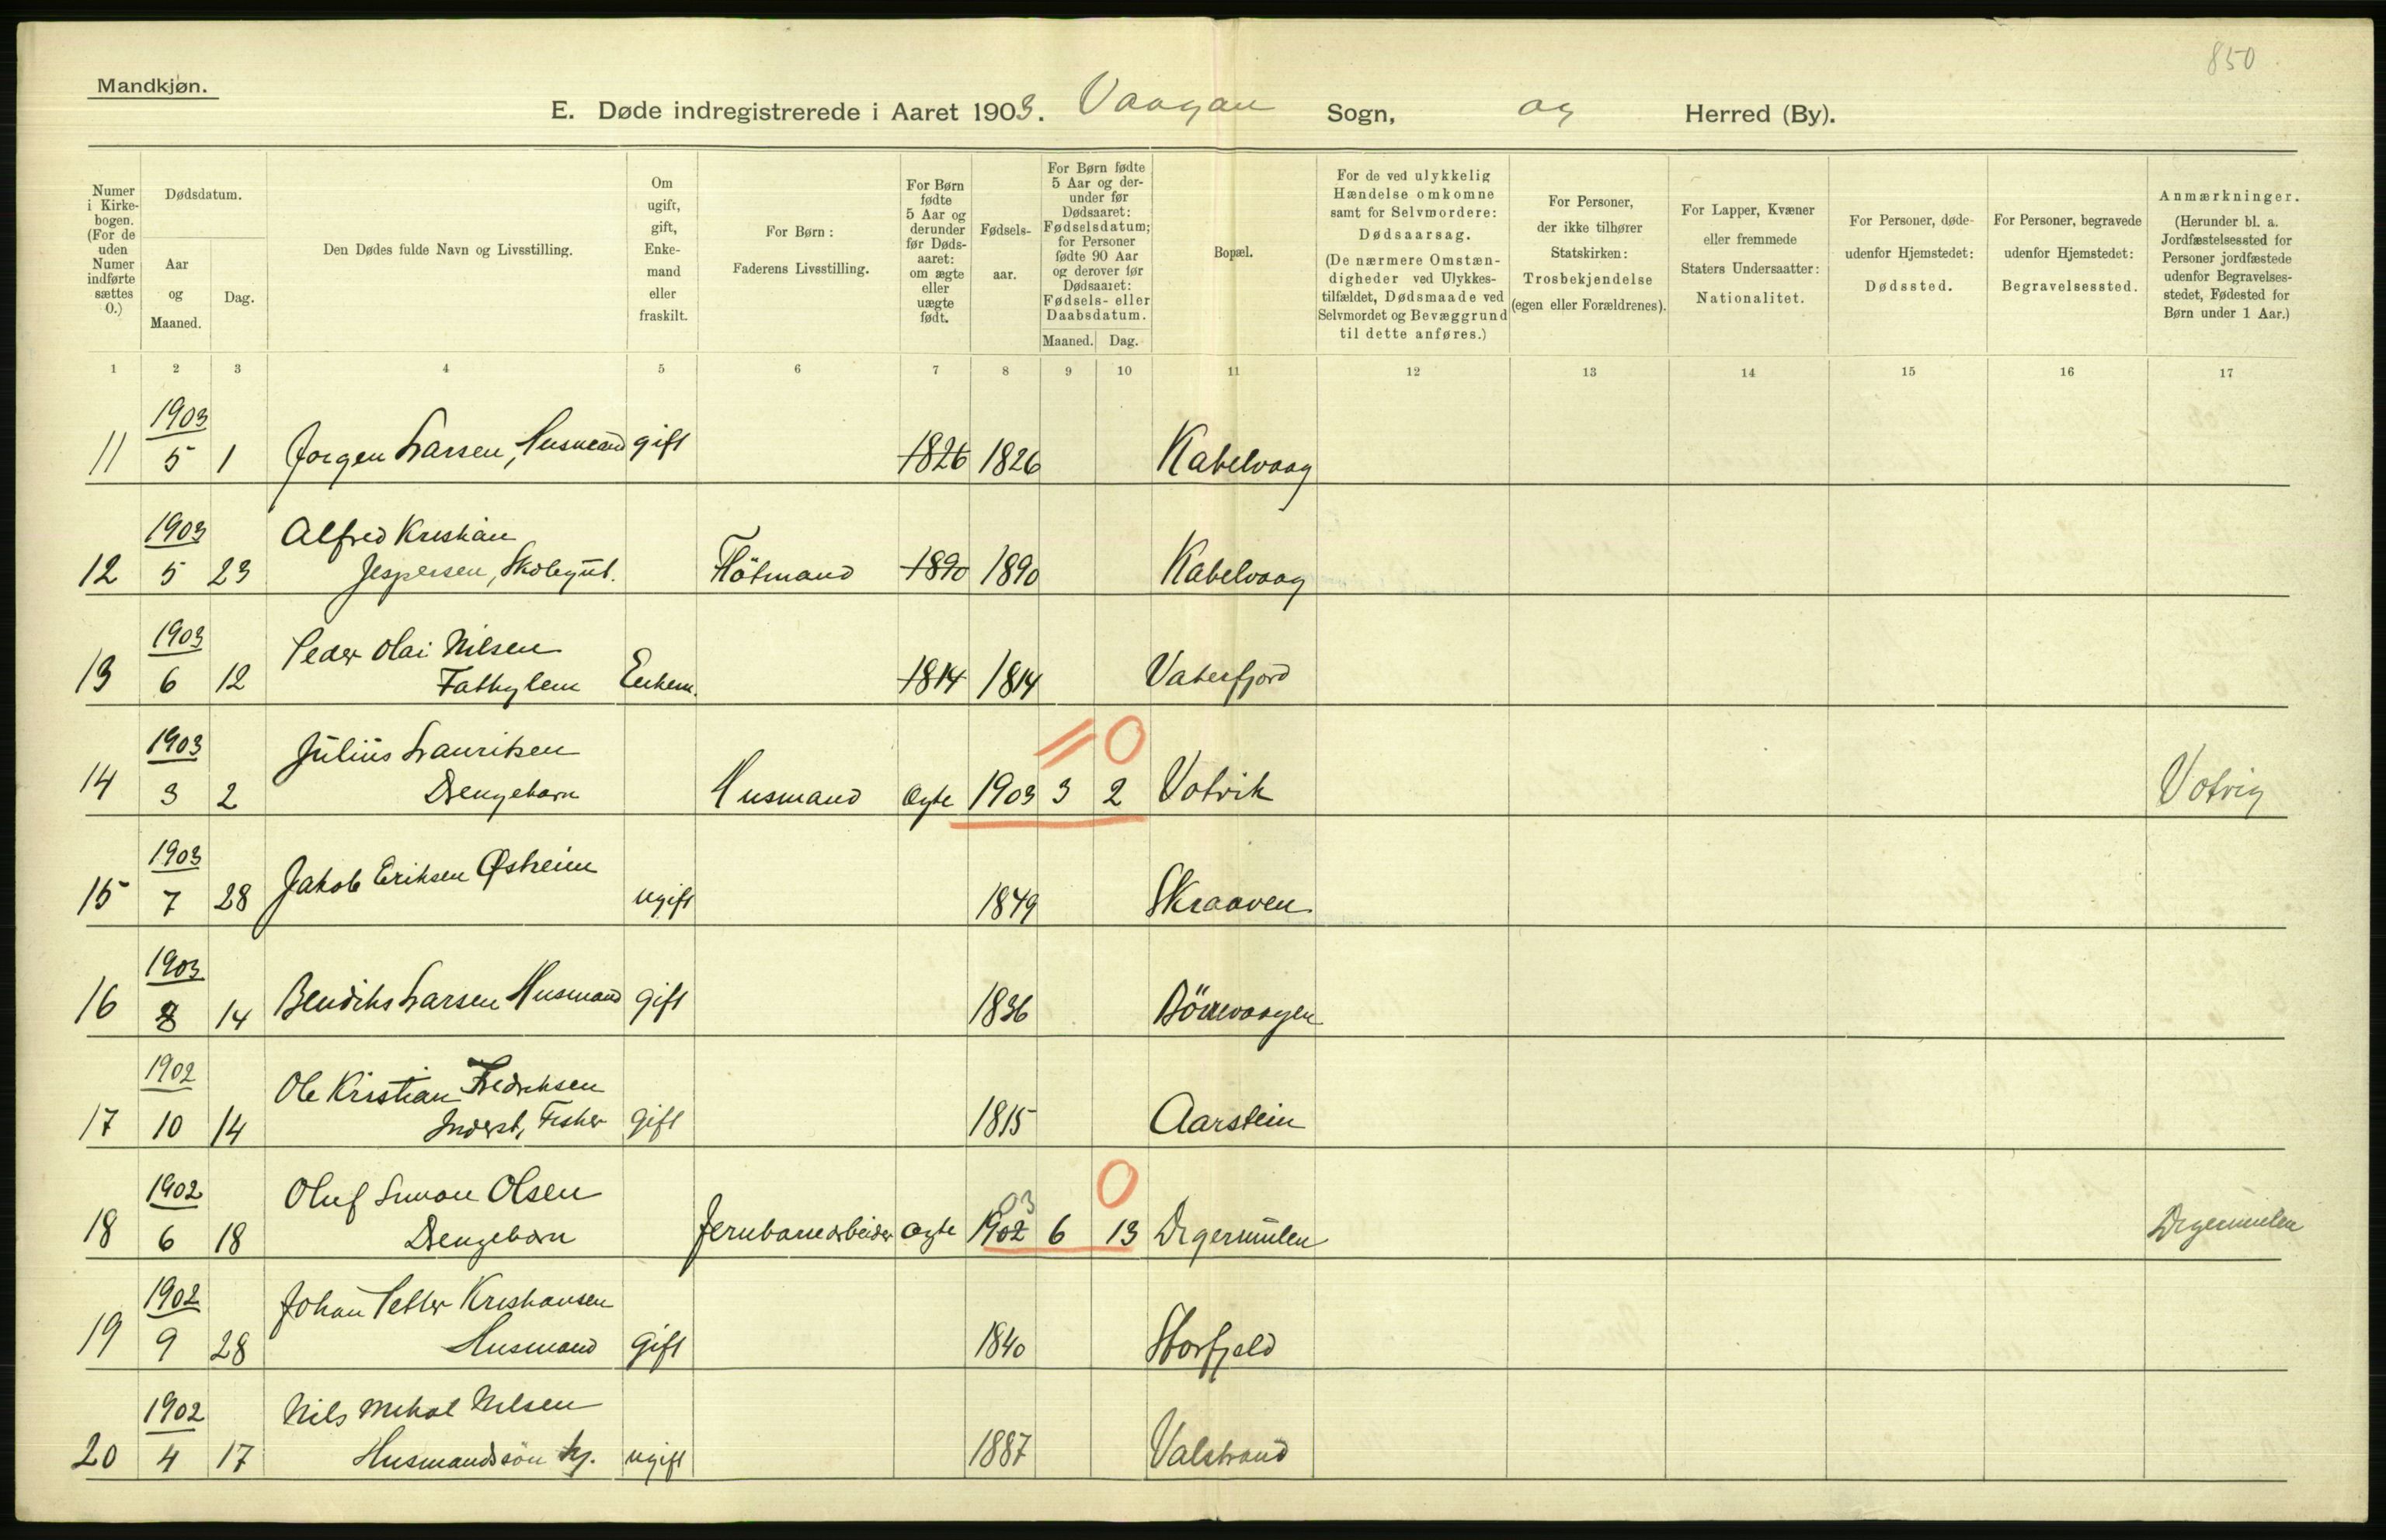 850
Mandkjøn.
E. Døde indregistrerede i Aaret 1903. Vaagan Sogn, og Herred (By).
Numer i Kirkebogen. (For de uden Numer indførte sættes 0.)
Dødsdatum.
Aar og Maaned.
Dag.
Den Dødes fulde Navn og Livsstilling.
Om ugift, gift, Enkemand eller fraskilt.
For Børn: Faderens Livsstilling.
For Børn fødte 5 Aar og derunder før Dødsaaret: om ægte eller uægte født.
Fødselsaar.
For Børn fødte 5 Aar og derunder før Dødsaaret: Fødselsdatum; for Personer fødte 90 Aar og derover før Dødsaaret: Fødsels- eller Daabsdatum.
Maaned. Dag.
Bopæl.
For de ved ulykkelig Hændelse omkomne samt for Selvmordere: Dødsaarsag. (De nærmere Omstændigheder ved Ulykkestilfældet, Dødsmaade ved Selvmordet og Bevæggrund til dette anføres.)
For Personer, der ikke tilhører Statskirken: Trosbekjendelse (egen eller Forældrenes).
For Lapper, Kvæner eller fremmede Staters Undersaatter: Nationalitet.
For Personer, døde udenfor Hjemstedet: Dødssted.
For Personer, begravede udenfor Hjemstedet: Begravelsessted.
Anmærkninger. (Herunder bl. a. Jordfæstelsessted for Personer jordfæstede udenfor Begravelsesstedet, Fødested for Børn under 1 Aar.)
1 2 3 4 5 6 7 8 9 10 11 12 13 14 15 16 17
1903
11 5 1 Jørgen Larsen, Husmand gift 1826 1826 Kabelvaag
1903 Alfred Kristian
12 5 23 Jespersen, Skolegut. Flötmand 1890 1890 Kabelvaag
1903 Peder Olai Nilsen
13 6 12 Fattiglem Enkem. 1814 1814 Vaterfjord
1903 Julius Lauritsen 0
14 3 2 Drengebarn Husmand Ægte 1903 3 2 Votvik Votvig
1903 Jakob Eriksen Østheim
15 7 28 ugift 1849 Skraaven
1903
16 8 14 Bendiks Larsen Husmand gift 1836 Börrvaagen
1902 Ole Kristian Fredriksen
17 10 14 Inderst, Fisker gift 1815 Aarstein
1902 Oluf Simon Olsen 03 0
18 6 18 Drengebarn Jernbanearbeider Ægte 1902 6 13 Digermulen Digermulen
1902 Johan Petter Kristiansen
19 9 28 Husmand gift 1840 Storfjeld
1902 Nils Mikal Nilsen
20 4 17 Husmandssön ugift 1887 Valstrand